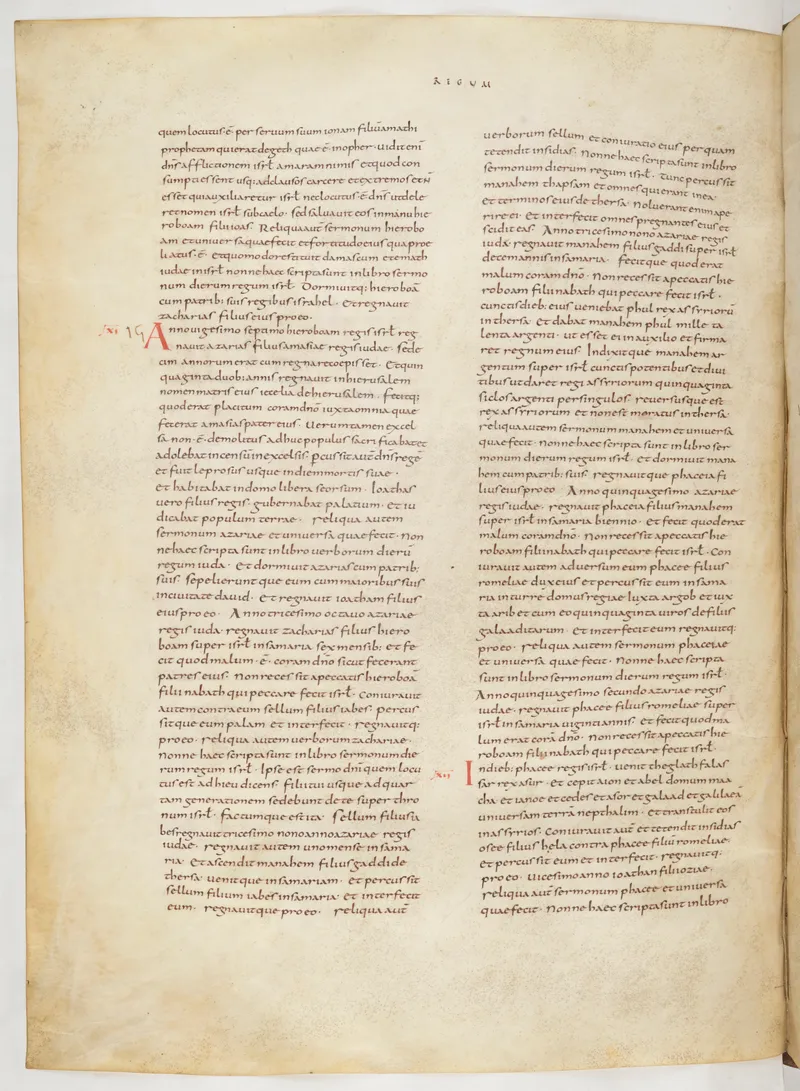 REGUM
quem locutus ÷ per seruum suum ionam filiū amathi
prophetam qui erat de geth quae ÷ in opher · uidit eni
dns afflictionem isrl amaram nimis et quod con
sumpti essent usq; ad clausos carcere et extremos et n̄
esset qui auxiliaretur isrl nec locutus ÷ dns ut dele
ret nomen isrl sub caelo · sed saluauit eos in manu hie
roboam filii ioas · Reliqua aut sermonum hierobo
am et uniuersa quae fecit et fortitudo eius qua proe
liatus ÷ et quomodo restituit damascum et emath
iudae in isrl nonne haec scripta sunt in libro sermo
num dierum regum isrl · Dormiuitq; hieroboā
cum patrib; suis regibus israhel · Et regnauit
zacharias filius eius pro eo ·
xi 15 Anno uigesimo septimo hieroboam regis isrl reg
nauit azarias filius amasiae regis iudae · sede
cim annorum erat cum regnare coepisset · Et quin
quaginta duob; annis regnauit in hierusalem
nomen matris eius iecelia de hierusalem · fecitq;
quod erat placitum coram dno iuxta omnia quae
fecerat amasias pater eius · Uerumtamen excel
sa non ÷ demolitus adhuc populus sacrificabat et
adolebat incensū in excelsis · percussit aut dns regē
et fuit leprosus usque in diem mortis suae ·
et habitabat in domo libera seorsum · Ioathas
uero filius regis gubernabat palatium · et iu
dicabat populum terrae · reliqua autem
sermonum azariae et uniuersa quae fecit · Non
ne haec scripta sunt in libro uerborum dierū
regum iuda · Et dormiuit azarias cum patrib;
suis · sepelieruntque eum cum maioribus suis
in ciuitate dauid · Et regnauit ioatham filius
eius pro eo · Anno tricesimo octauo azariae
regis iuda · regnauit zacharias filius hiero
boam super isrl in samaria sex mensib; et fe
cit quod malum ÷ · coram dno sicut fecerant
patres eius · Non recessit a peccatis hieroboā
filii nabath qui peccare fecit isrl · Coniurauit
autem contra eum sellum filius iabes · percus
sitque eum palam et interfecit · regnauitq;
pro eo · reliqua autem uerborum zachariae ·
Nonne haec scripta sunt in libro sermonum die
rum regum isrl · Ipse est sermo dni quem locu
tus est ad hieu dicens · filii tui usque ad quar
tam generationem sedebunt de te super thro
num isrl · factumque est ita · Sellum filius ia
bes regnauit tricesimo nono anno azariae regis
iudae · regnauit autem uno mense in sama
ria · Et ascendit manahem filius gaddi de
thersa · uenitque in samariam · et percussit
sellum filium iabes in samaria et interfecit
eum · regnauitque pro eo · reliqua aut
uerborum sellum et coniuratio eius per quam
tetendit insidias · Nonne haec scripta sunt in libro
sermonum dierum regum isrl · Tunc percussit
manahem thapsam et omnes qui erant in ea
et terminos eius de thersa · Noluerant enim ape
rire ei · Et interfecit omnes pregnantes eius et
scidit eas · Anno tricesimo nono azariae regis
iuda regnauit manahem filius gaddi super isrl
decem annis in samaria · fecitque quod erat
malum coram dno · Non recessit a peccatis hie
roboam filii nabath qui peccare fecit isrl ·
cunctis dieb; eius ueniebat phul rex assyriorū
in thersa · Et dabat manahem phul mille ta
lenta argenti · ut esset ei in auxilio et firma
ret regnum eius · Indixitque manahem ar
gentum super isrl cunctis potentibus et diui
tibus ut daret regi assyriorum quinquaginta
siclos argenti per singulos · reuersusque est
rex assyriorum et non est moratus in thersa ·
reliqua autem sermonum manahem et uniuersa
quae fecit · Nonne haec scripta sunt in libro ser
monum dierum regum isrl · et dormiuit mana
hem cum patrib; suis · regnauitque phaceia fi
lius eius pro eo · Anno quinquagesimo azariae
regis iudae · regnauit phaceia filius manahem
super isrl in samaria biennio · et fecit quod erat
malum coram dno · Non recessit a peccatis hie
roboam filii nabath qui peccare fecit isrl · Con
iurauit autem aduersum eum phacee filius
romeliae dux eius et percussit eum in sama
ria in turre domus regiae iuxta argob et iux
ta arib et cum eo quinquaginta uiros de filiis
galaaditarum · Et interfecit eum regnauitq;
pro eo · reliqua autem sermonum phaceiae
et uniuersa quae fecit · Nonne haec scripta
sunt in libro sermonum dierum regum isrl ·
Anno quinquagesimo secundo azariae regis
iudae · regnauit phacee filius romeliae super
isrl in samaria uiginti annis · et fecit quod ma
lum erat corā dno · Non recessit a peccatis hie
roboam filii nabath qui peccare fecit isrl ·
xii In dieb; phacee regis isrl · uenit theglath falas
sar rex assur · et cepit aion et abel domum maa
cha · et ianoe et cedes et asor et galaad et galilaeā
uniuersam terrā nepthalim · et transtulit eos
in assyrios · Coniurauit aut et tetendit insidias
osee filius hela contra phacee filiū romeliae ·
et percussit eum et interfecit · regnauitq;
pro eo · uicesimo anno ioathan filii oziae ·
reliqua aut sermonum phacee et uniuersa
quae fecit · Nonne haec scripta sunt in libro